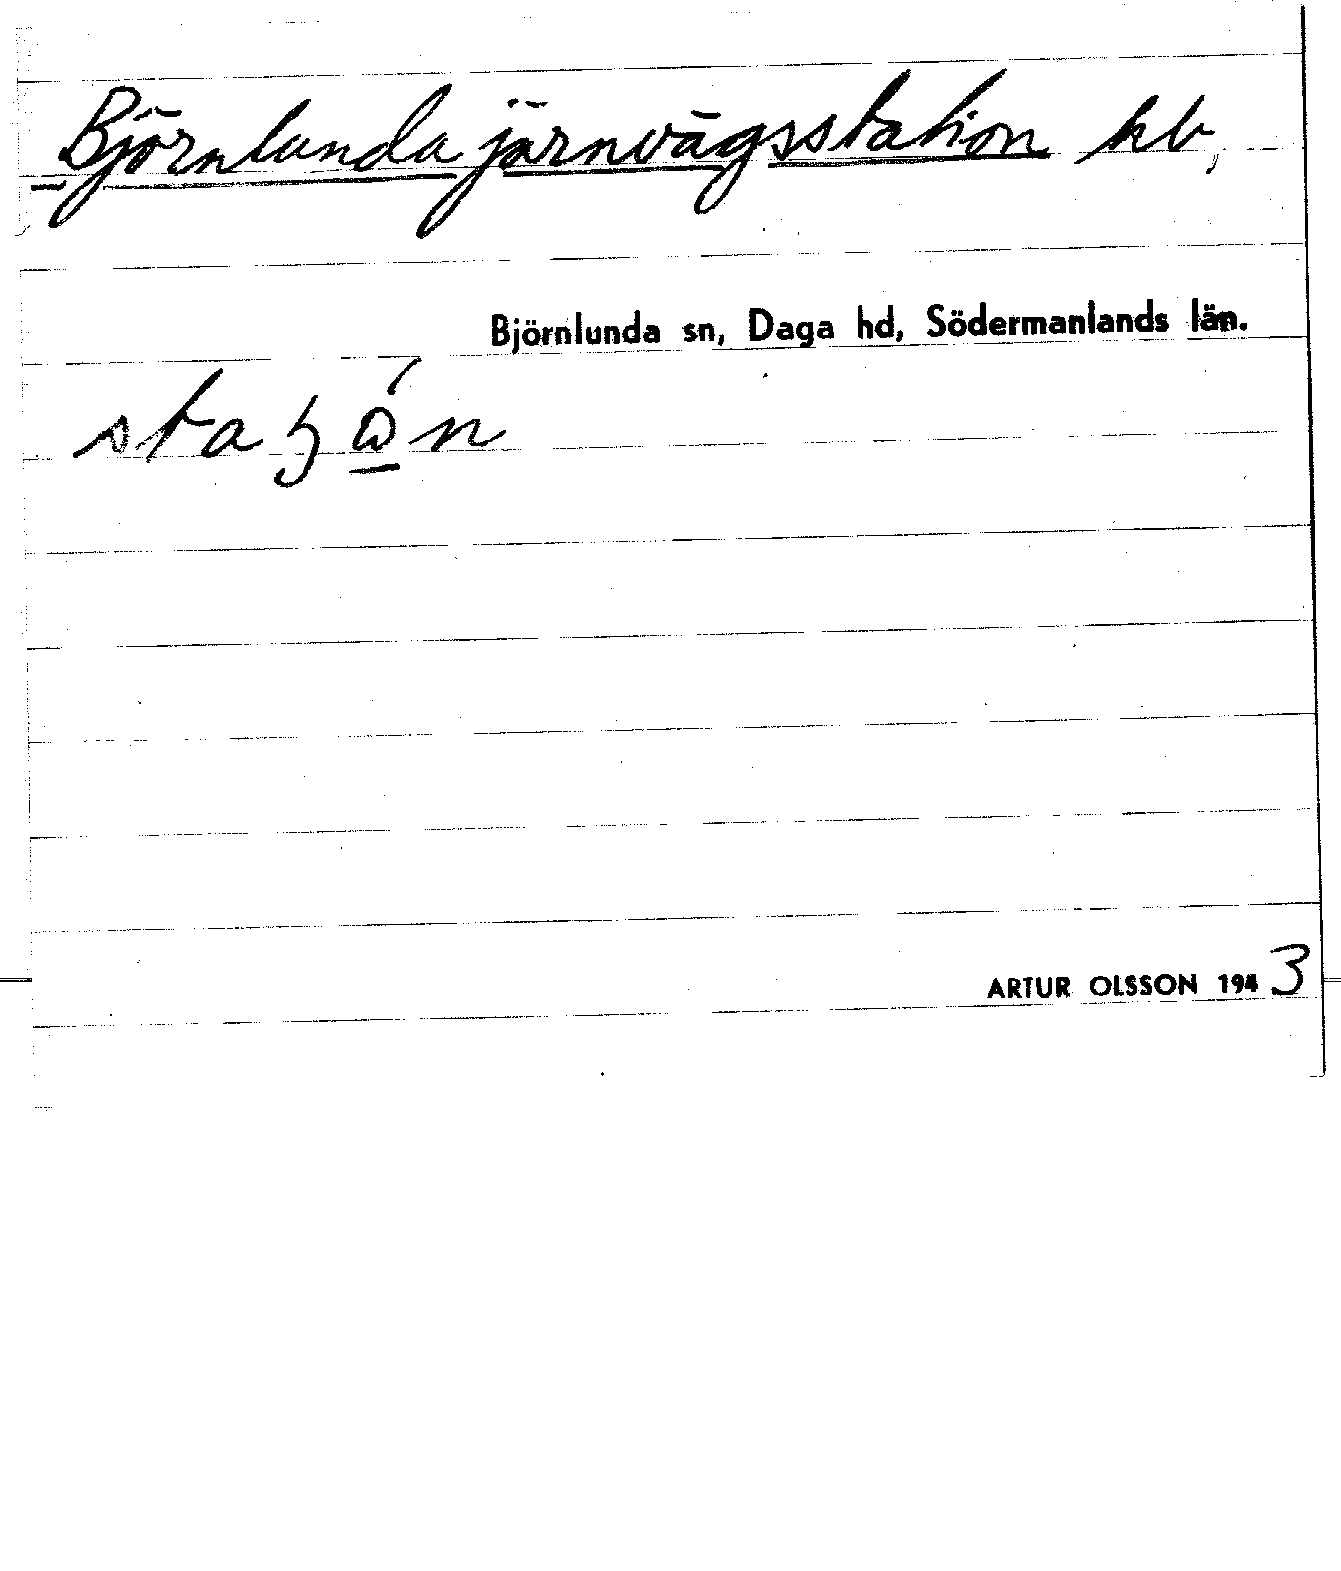 Björnlunda järnvägsstation hb,
Björnlunda sn, Daga hd, Södermanlands län.
ARTUR OLSSON 1943